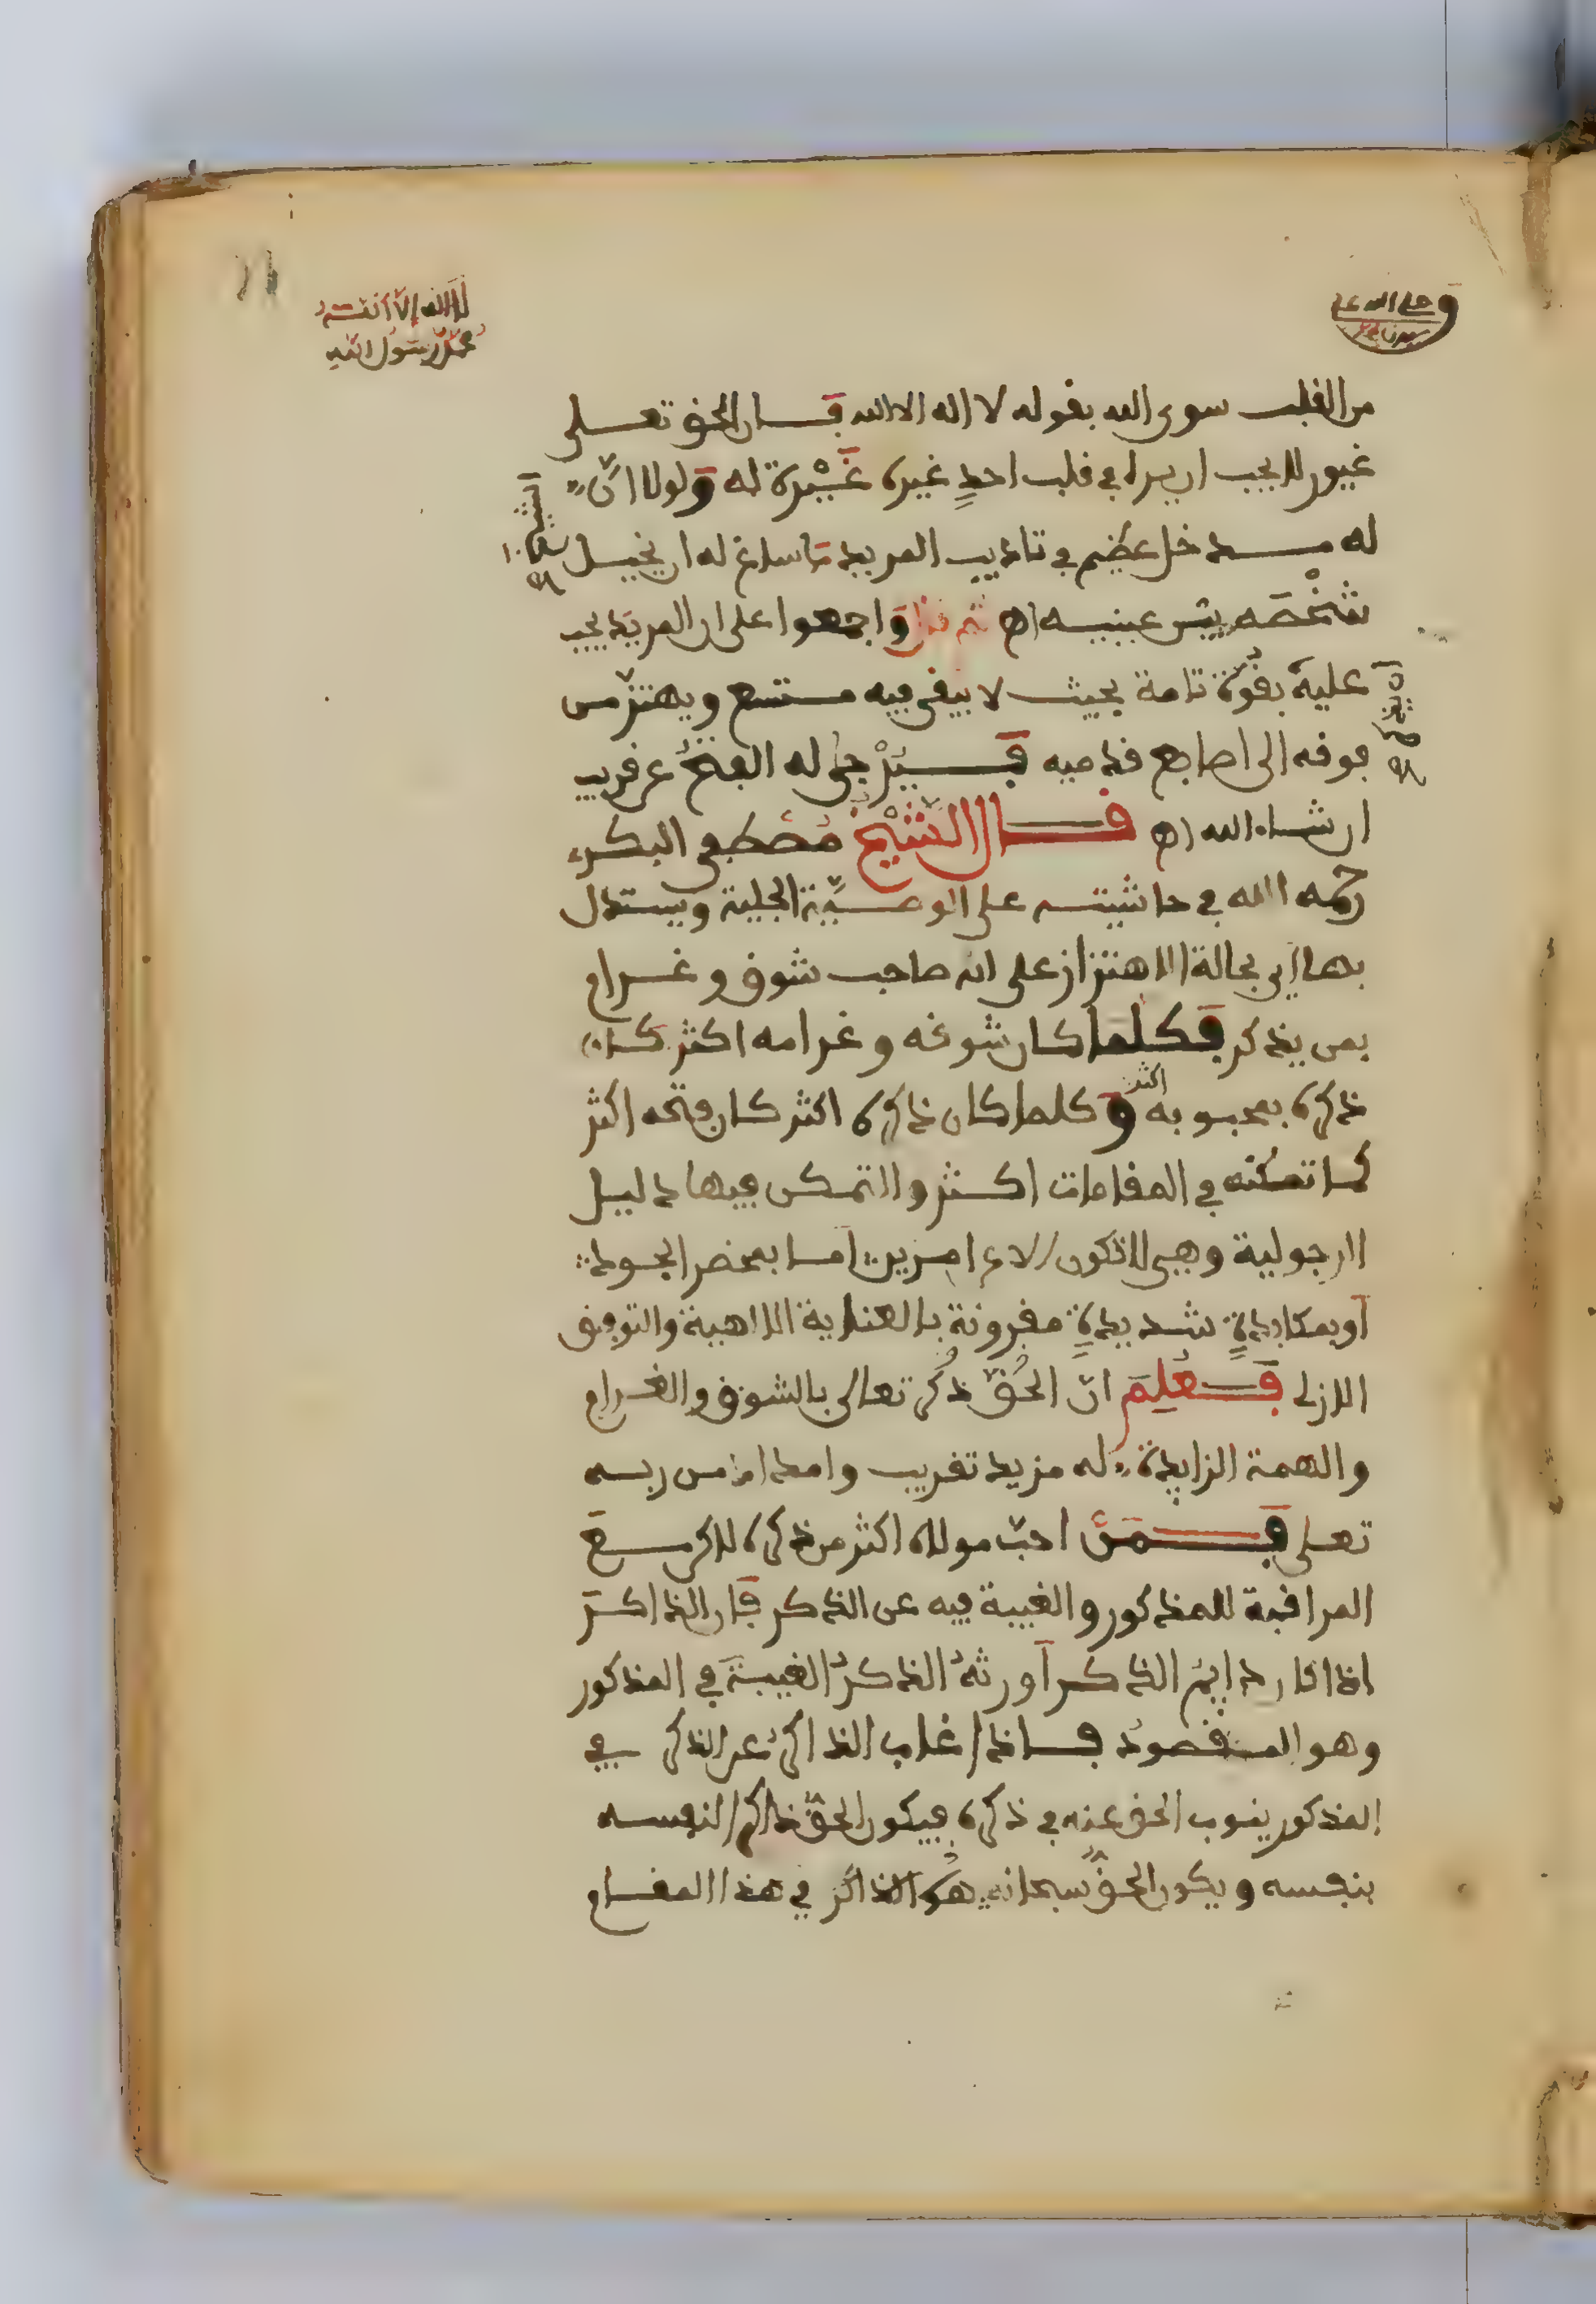 وصلى الله على
سيدنا محمد
لا اله الا انت
محمد رسول الله
من القلب سوى الله بقوله لا اله الا الله فان الحق تعلى
غيور لا يحب ان يرا في قلب احدٍ غيره غَيْرة له ولولا انّ
الشيخ
له مدخل عظيم في تاديب المريد ما ساغ له ان يخيل
شخْصَه بين عينيه اه ثم قال واجمعوا على ان المريد يجب
عليه بقوة تامة بحيث لا يبقى فيه متسع ويهتز من
فوقه الى اصابع قدميه فيُرْجى له الفتح عن قريب
ان شاء الله اه قال الشيْخ مُصْطفى البكري
رحمه الله في حاشيته على الوصيّة الجلية ويستدل
بها اي بحالة الاهتزاز على انه صاحب شوق وغرام
بمن يذكر فكلما كان شوقه وغرامه اكثر كان
ذكره بمحبوبه اكثر وكلما كان ذكره اكثر كان فتحه اكثر
كما تمكنه في المقامات اكثر والتمكن فيها دليل
الرجولية وهي لا تكون الا مع امرين اما بمحض الجود
او بمكابدةٍ شديدةٍ مقرونة بالعناية الالهية والتوفيق
الازلي فعُلِمَ انّ الحُقّ ذكره تعالى بالشوق والغرام
والهمة الزايدة له مزيد تقريب وامداد من ربه
تعلى فمَنْ احبّ مولاه اكثر من ذكره لاكن مع
المراقبة للمذكور والغيبة فيه عن الذكر فان الذاكر
اذا كان دايم الذكر اورثهُ الذكرُ الغيبةَ في المذكور
وهو المقصودُ فاذا غاب الذاكرُ عن الذكر في
المذكور ينوب الحق عنه في ذكره فيكون الحقّ ذاكرا لنفسه
بنفسه ويكون الحقّ سبحانه هُوَ الذاكر في هذا المقام